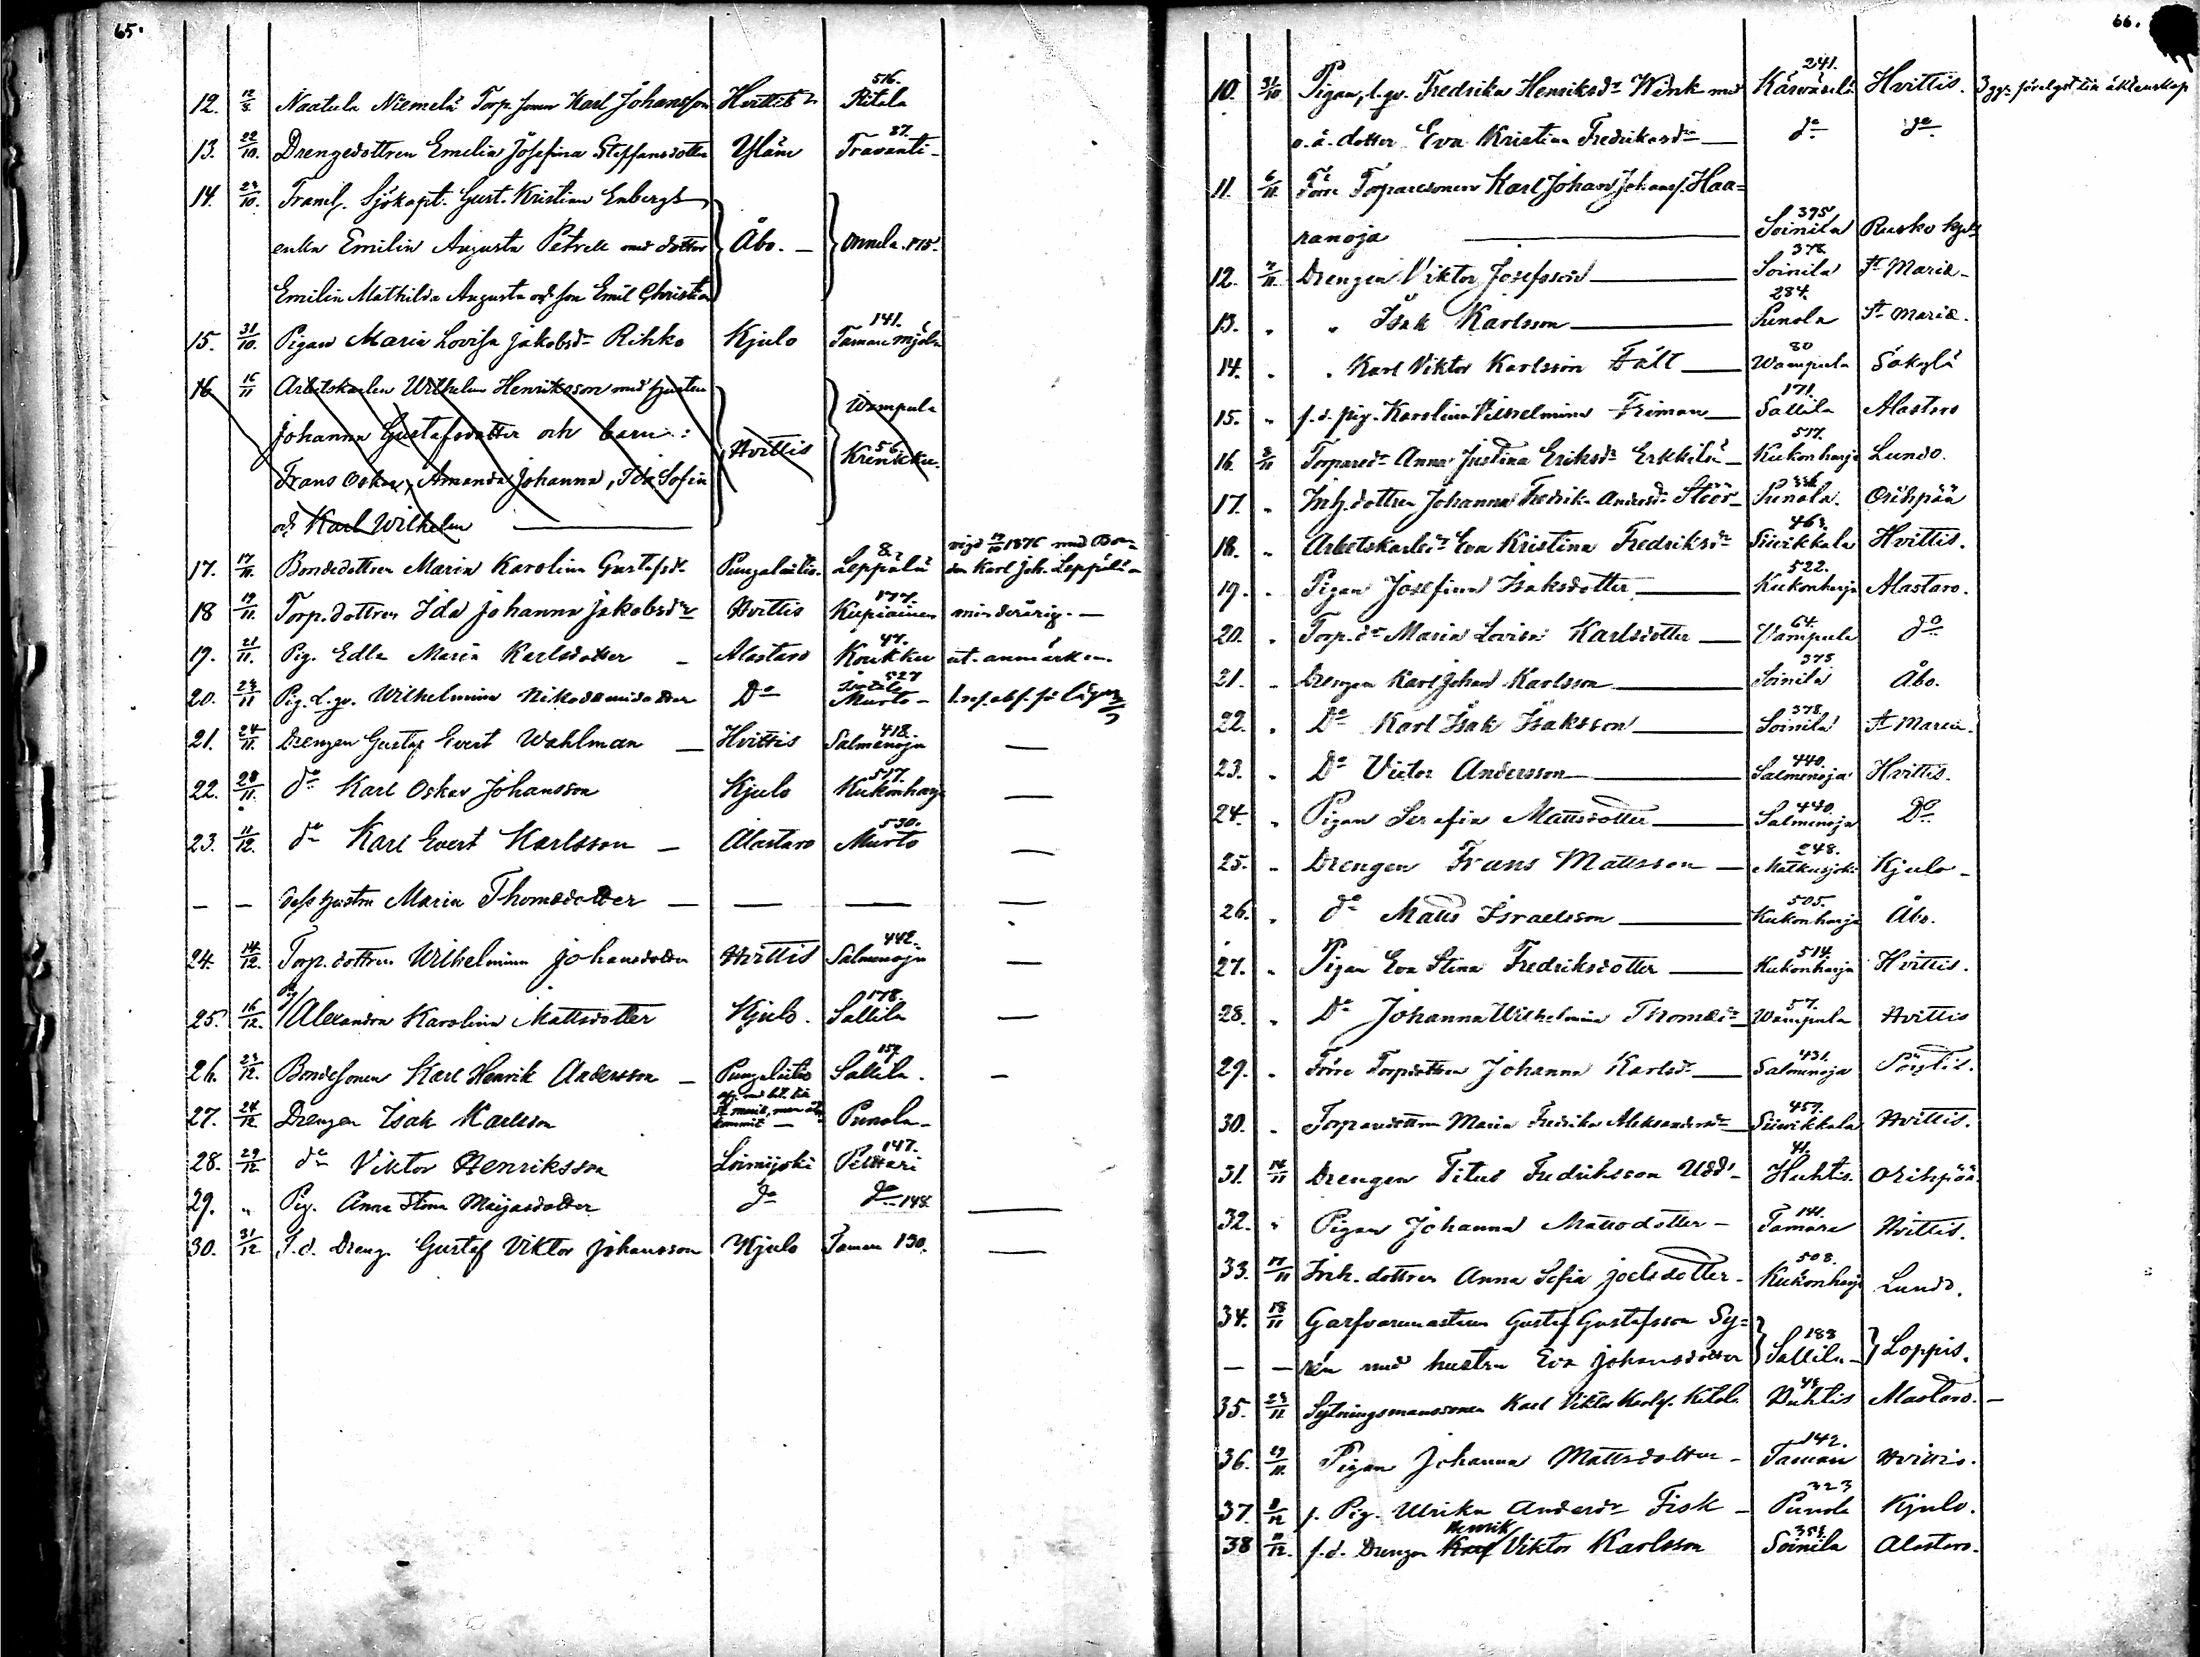 65.
12. 12/8. Naatula Niemelä Torp. sonen Karl Johansson Hvittis 516. Ritala
13. 22/10. Drengedottren Emelia Josefina Steffansdotter Yläne 87. Travanti -
14. 29/10. Framl. Sjökapt. Gust. Kristian Enbergs
enka Emilia Augusta Petrell med dotter Åbo. - Onnela. 115.
Emilia Mathilda Augusta och son Emil Christian
15. 31/10. Pigan Maria Lovisa Jakobsdr Rihko Kjulo 141. Tamare
16 16/11 Arbetskarlen Wilhelm Henriksson med hustru Wampula
Johanna Gustafsdotter och barn: Hvittis 56 Krenkku.
Frans Oskar, Amanda Johanna, Ida Sofia
och Karl Wilhelm
17. 17/11. Bondedottren Maria Karolina Gustafsdr Pungalaitio. 8. Leppälä vigd 19/10 1876 med Bon=
den Karl Joh. Leppälä -
18 19/11. Torp. dottren Ida Johanna Jakobsdr Hvittis 177. Kupiainen minderårig. -
19. 21/11. Pig. Edla Maria Karlsdotter - Alastaro 47. Koukku ut. anmärkn.
20. 23/11 Pig. L.qv. Wilhelmina Nikodemidotter Do 527 Murto -
21. 24/11. Drengen Gustaf Evert Wahlman - Hvittis 418. Salmenoja -
22. 28/11. do Karl Oskar Johansson Kjulo 517. Kukonharj -
23. 11/12. do Karl Evert Karlsson - Alastaro 530. Murto -
- - dess hustru Maria Thomasdotter - - - -
24. 14/12. Torp. dottren Wilhelmina Johansdotter Hvittis 442. Salmenoja -
25. 16/12. Pig. Alexandra Karolina Mattsdotter Kjulo. 178. Sallila -
26. 23/12. Bondesonen Karl Henrik Andersson - Pungalaitio 159 Sallila. -
27. 24/12 Drengen Isak Karlsson Punola -
28. 29/12 do Viktor Henriksson Loimijoki 147. Pelttari
29. " Pig. Anna Stina Maijasdotter do do 148. -
30. 31/12 f.d. Dreng. Gustaf Viktor Johansson Kjulo Tamare 130. -
66.
10. 31/10 Pigan, l.qv. Fredrika Henriksdr Wink med 241. Kärväselä Hvittis. 3 ggr förelyst till äktenskap
o.ä. dotter Eva Kristina Fredrikasdr - do do
11. 6/11 Förre Torparesonen Karl Johan Johanss. Haa=
ranoja - 395 Soinila Rusko kpll
12. 7/11. Drengen Viktor Josefsson - 378 Soinila St Marie -
13. " " Isak Karlsson - 284. Punola St Mariæ.
14. " " Karl Viktor Karlsson Fält - 80 Wampula Säkylä
15. " f.d. pig. Karolina Vilhelmina Friman - 171. Sallila Alastaro
16. 8/11 Torparedr Anna Justina Eriksdr Erkkilä - 517. Kukonharja Lundo.
17. " Inh. dottren Johanna Fredrika Andersdr Stöör - Punola. Oripää
18. " Arbetskarlsdr Eva Kristina Fredriksdr 463. Suvikkala Hvittis.
19. " Pigan Josefina Isaksdotter - 522. Kukonharja Alastaro.
20. " Torp. dr Maria Lovisa Karlsdotter - 64. Vampula do
21. " Drengen Karl Johan Karlsson - 375 Soinila Åbo.
22. " Do Karl Isak Isaksson - 378. Soinila St Marie.
23. " Do Victor Andersson - 440. Salmenoja Hvittis.
24. " Pigan Serafia Mattsdotter - 440. Salmenoja Do
25. " Drengen Frans Mattsson - 248. Matkusjoki Kjulo -
26. " do Matts Israelsson - 505. Kukonharja Åbo.
27. " Pigan Eva Stina Fredriksdotter - 514. Kukonharja Hvittis.
28. " Do Johanna Wilhelmina Thomædr 57. Wampula Hvittis
29. " Förre Torpdottren Johanna Karlsdr - 431. Salmenoja Pöytis.
30. " Torparedottren Maria Fredrika Aleksandersdr - 457. Suvikkala Hvittis.
31. 14/11 Drengen Titus Fredriksson Udd - 41. Huhtis. Oripää.
32. " Pigan Johanna Mattsdotter - 141. Tamare Hvittis.
33. 17/11 Inh. dottren Anna Sofia Joelsdotter - 508. Kukonharja Lundo.
34. 18/11 Garfvaremästaren Gustaf Gustafsson Sy= 188
- - rén med hustru Eva Johansdotter Sallila - Loppis.
35. 23/11 Sytningsmanssonen Karl Viktor Karlss. Ketola 48 Huhtis Alastaro. -
36. 29/11. Pigan Johanna Mattsdotter - 142. Tamare Hvittis.
37. 8/12 f. Pig. Ulrika Andersdr Fisk - 323 Punola Kjulo.
38 11/12. f.d. Drengen Karl Henrik Viktor Karlsson 359. Soinila Alastaro.